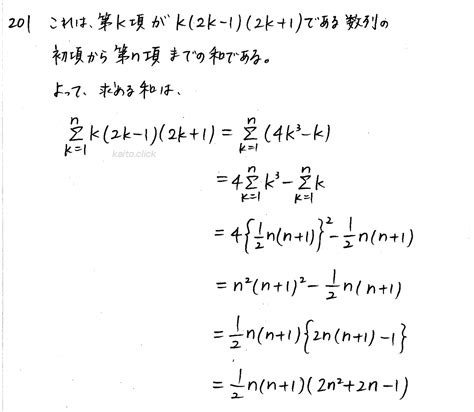 201 これは、第k項が k(2k-1)(2k+1)である数列の
初項から第n項までの和である。
よって、求める和は、
\sum_{k=1}^{n} k(2k-1)(2k+1) = \sum_{k=1}^{n} (4k³-k)
kaito.click
= 4\sum_{k=1}^{n} k³ - \sum_{k=1}^{n} k
= 4{\frac{1}{2}n(n+1)}² - \frac{1}{2}n(n+1)
= n²(n+1)² - \frac{1}{2}n(n+1)
= \frac{1}{2}n(n+1){2n(n+1)-1}
= \frac{1}{2}n(n+1)(2n²+2n-1)